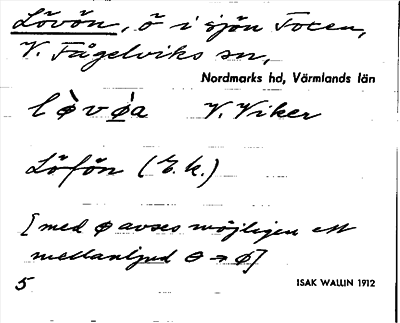 Lövön, ö i sjön Foxen,
V. Fågelviks sn,
Nordmarks hd, Värmlands län
lø̀vø̲a V. Viker
Löfön (E.k.)
[med ø avses möjligen ett
mellanljud ɵ → ø]
5 ISAK WALLIN 1912